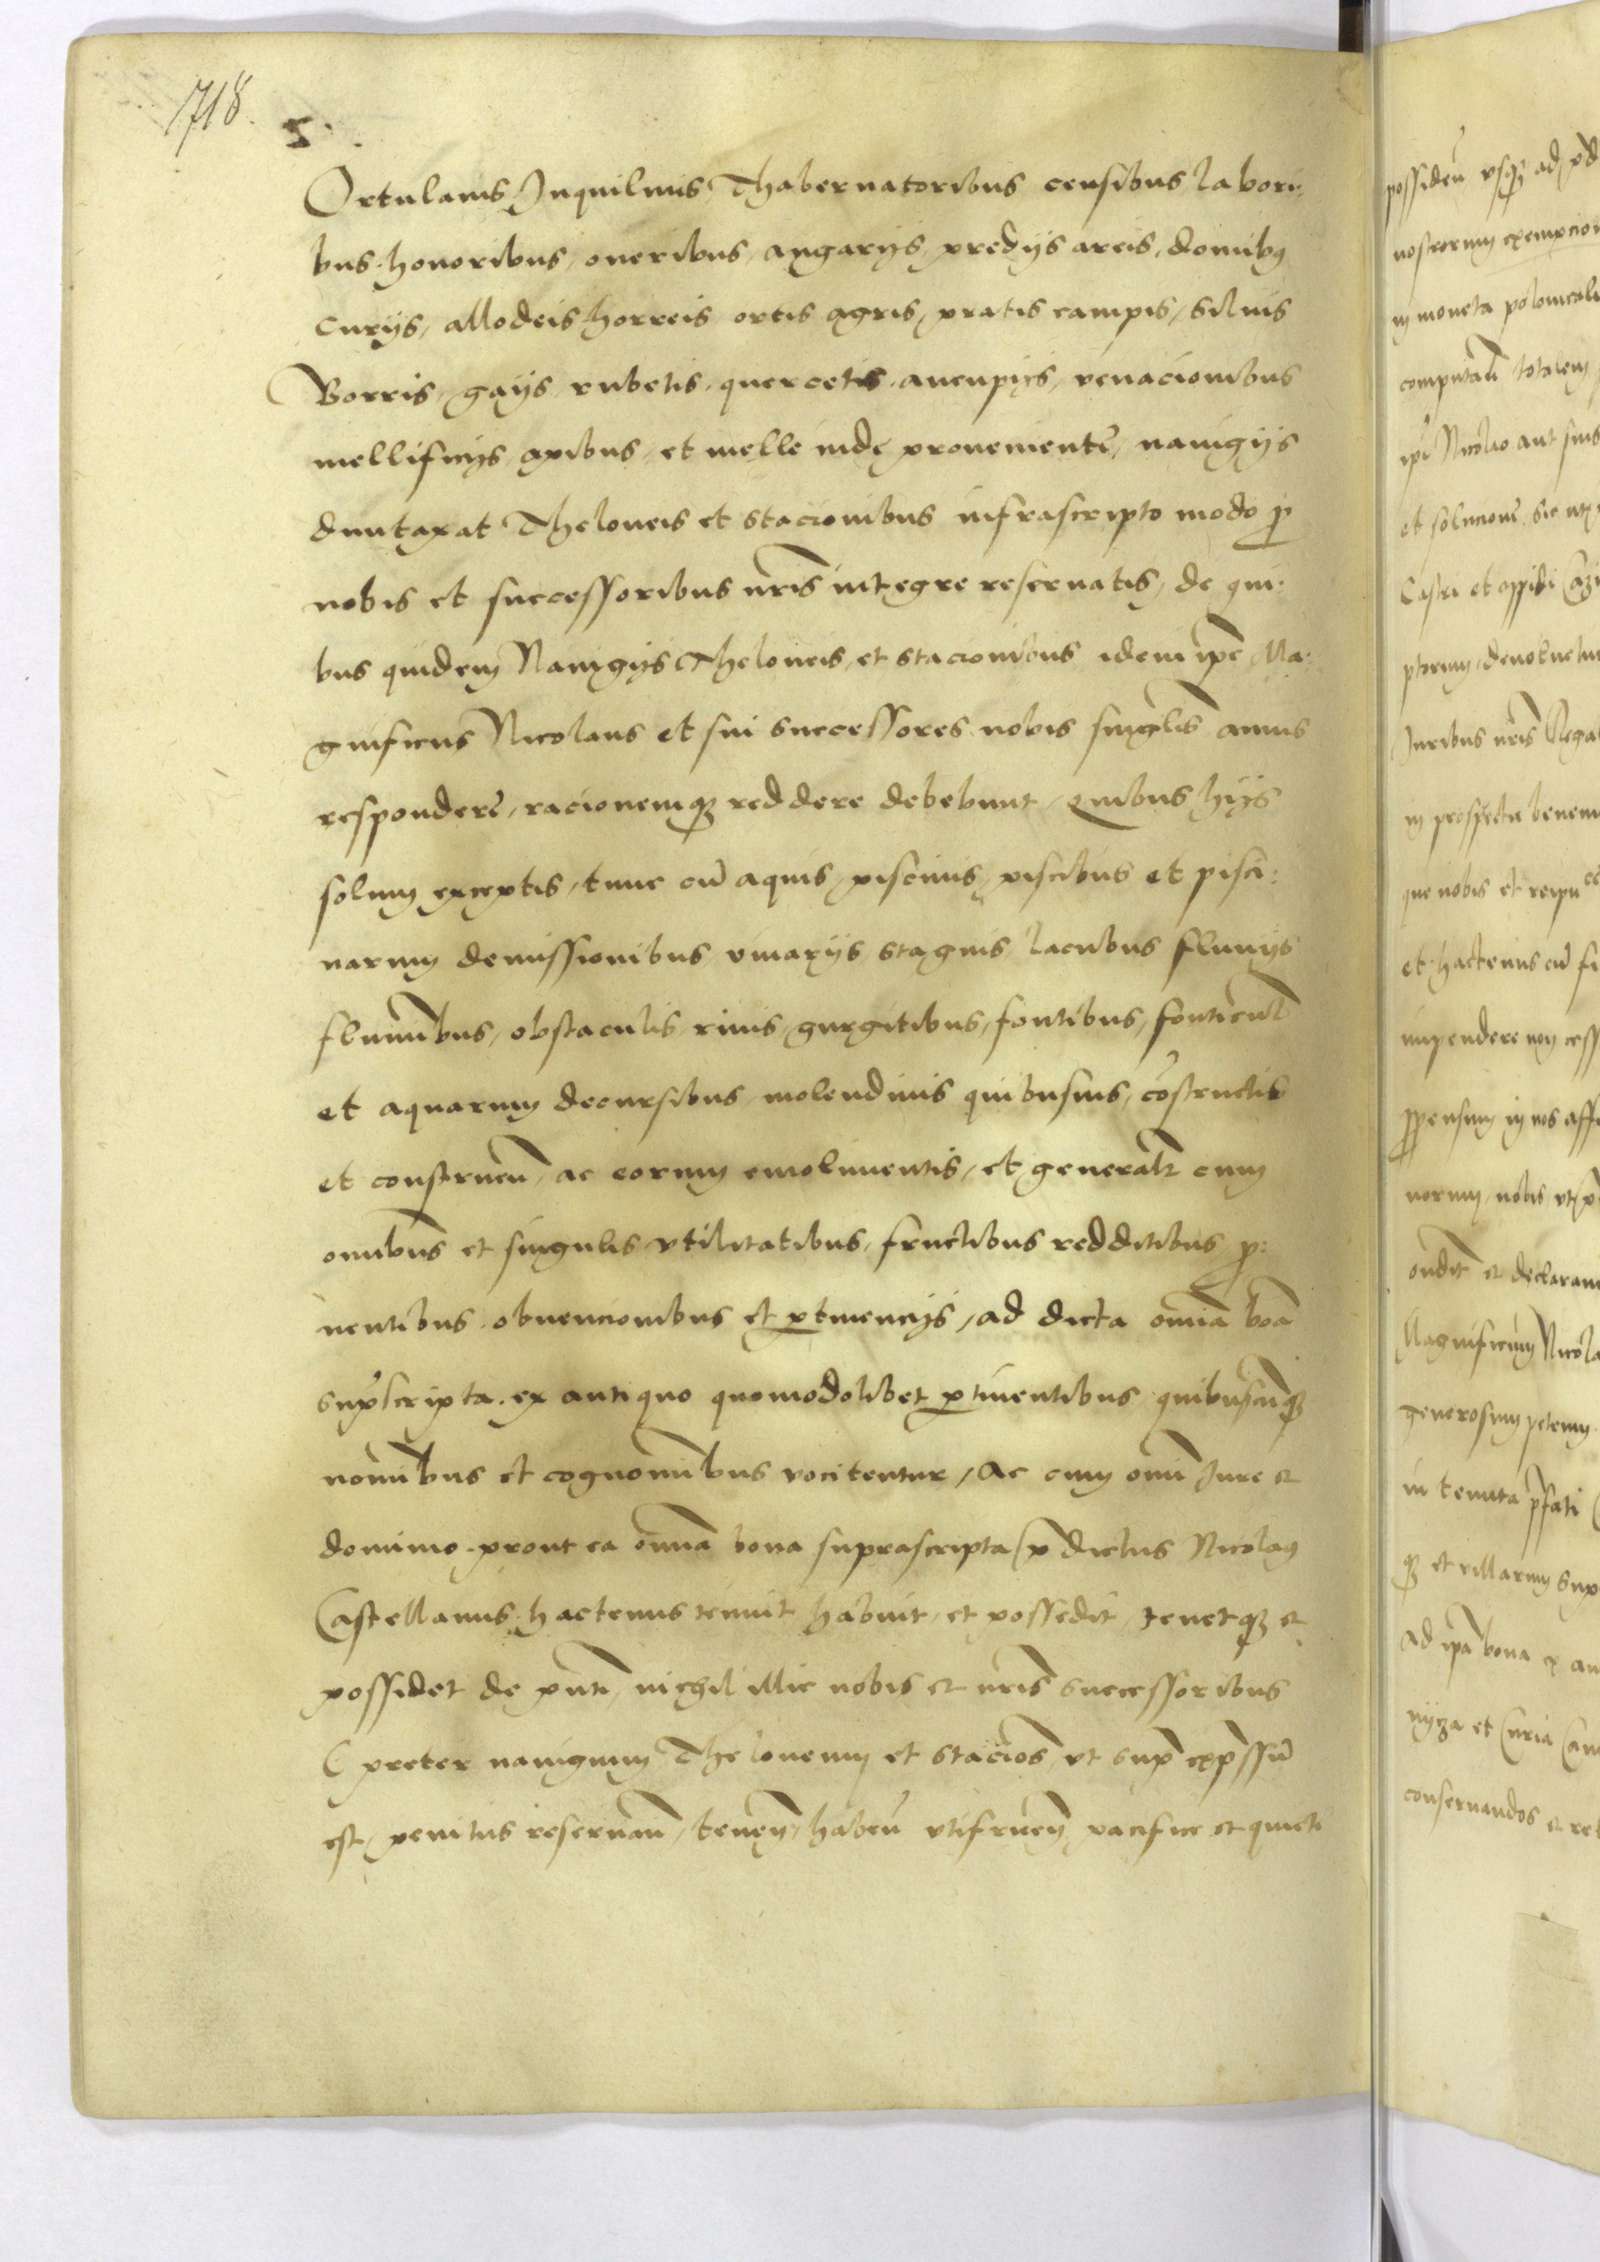 1718.
5.
Ortulanis Inquilinis Thabernatoribus censibus labori:
bus honoribus, oneribus, angarijs, predijs areis, domibꝰ
Curijs, allodeis horreis ortis agris, pratis campis, siluis
Borris, gaijs rubetis, quercetis, aucupijs, venacionibus
mellificijs apibus, et melle inde prouenientẽ, nauigijs
duntaxat Theloneis et stacionibus infrascripto modo ꝓ
nobis et successoribus nr̃is integre reseruatis, de qui:
bus quidem Nauigijs Theloneis, et stacionibus idem ip̃e Ma:
gnificus Nicolaus et sui successores nobis singl̃is annis
responderẽ, racionemqꝫ reddere debebunt, Quibus hijs
solum exceptis, tunc cũ aquis, piscinis, piscibus et pisci:
narum demissionibus viuarijs stagnis lacubus fluuijs
flumĩbus, obstaculis riuis, gurgitibus, fontibus, fonticul̃
et aquarum decursibus molendinis quibusuis, cõstructis
et construeñ, ac eorum emolimentis, et general̃r cum
om̃ibus et singulis vtilitatibus, fructibus redditibus ꝓ:
uentibus obuencionibus et ꝑtinencijs, ad dicta om̃ia boña
sup̃scripta ex antiquo quomodolibet ꝑtinentibus quibuscũqꝫ
nomĩbus et cognomĩbus vocitentur, Ac cum om̃i Jure et
dominio prout ea om̃ia bona suprascripta p̃dictus Nicolaꝰ
Castellanus hactenus tenuit habuit, et possedit, tenetqꝫ et
possidet de p̃nti, nichil illic nobis et nr̃is successoribus
( preter nauigium Theloneum et stacio͠s, vt sup̃ exp̃ssũ
est, penitus reseruañ, teneñ, habeñ vtifrueñ pacifice et quiete
possideñ vsqꝫ ad
nostrorum exempcion
in moneta polonicali
computañ totalem
ip̃i Nicolao aut suis
et solucioñ, sic
Castri et oppidi
ptorum, deuoluetur
Juribus nr̃is Regal
in prospectu
que nobis et reipu
et hactenus cũ
impendere non cess
ꝓpensum in nos affe
norum, nobis vt
ond̃it et declarauit
Magnificum Nicola
generosum
in tenuta p̃fati
qꝫ et villarum sup
Ad ip̃a bona
et Curia
conseruandos et